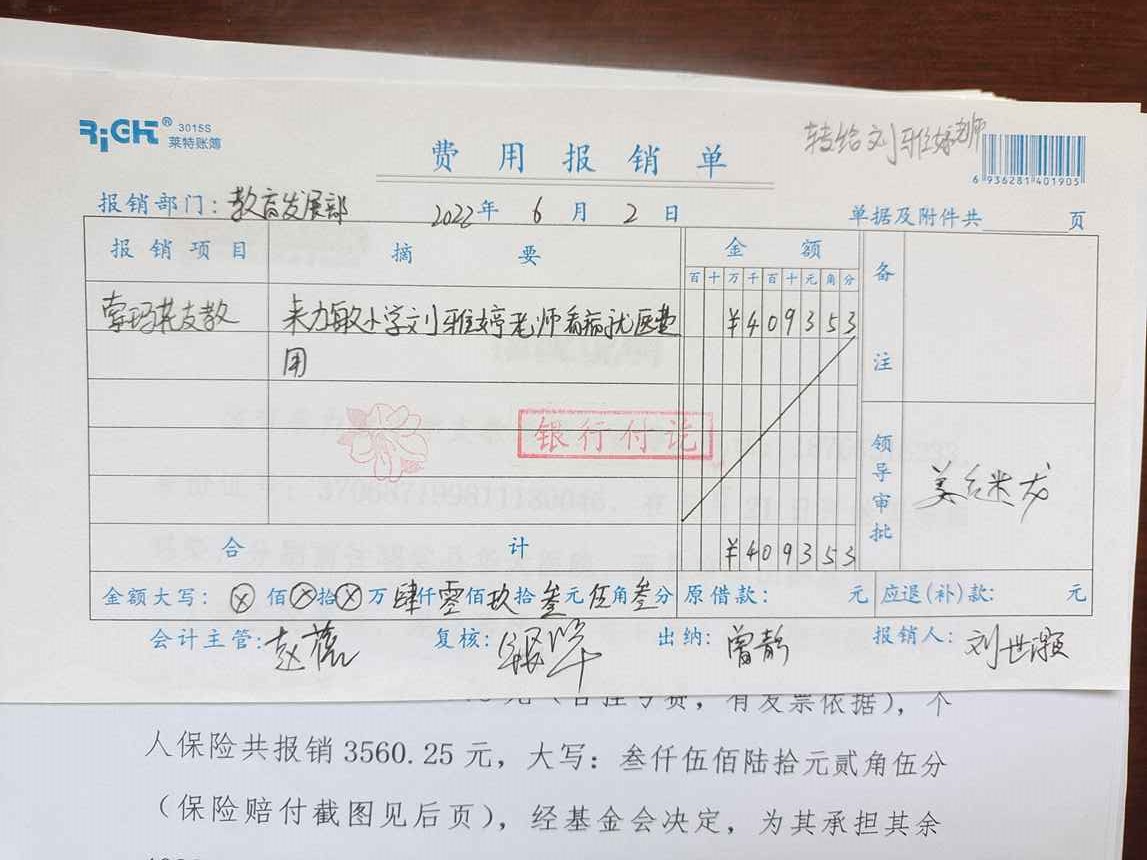 RiGHT® 3015S
莱特账簿
转给刘雅婷老师
费用报销单
6 936281 401905
报销部门：教育发展部 2022年 6月 2日 单据及附件共 页
报销项目 摘要 金额 备注
百 十 万 千 百 十 元 角 分
索玛花支教 来力敏小学刘雅婷老师看病就医费 ¥409353
用
银行付讫
领导审批
合计 ¥409353
金额大写：ⓧ佰ⓧ拾ⓧ万肆仟零佰玖拾叁元伍角叁分 原借款： 元 应退(补)款： 元
会计主管: 复核: 出纳:曾静 报销人:刘世灏
元（含挂号费，有发票依据），个
人保险共报销 3560.25 元，大写：叁仟伍佰陆拾元贰角伍分
（保险赔付截图见后页），经基金会决定，为其承担其余